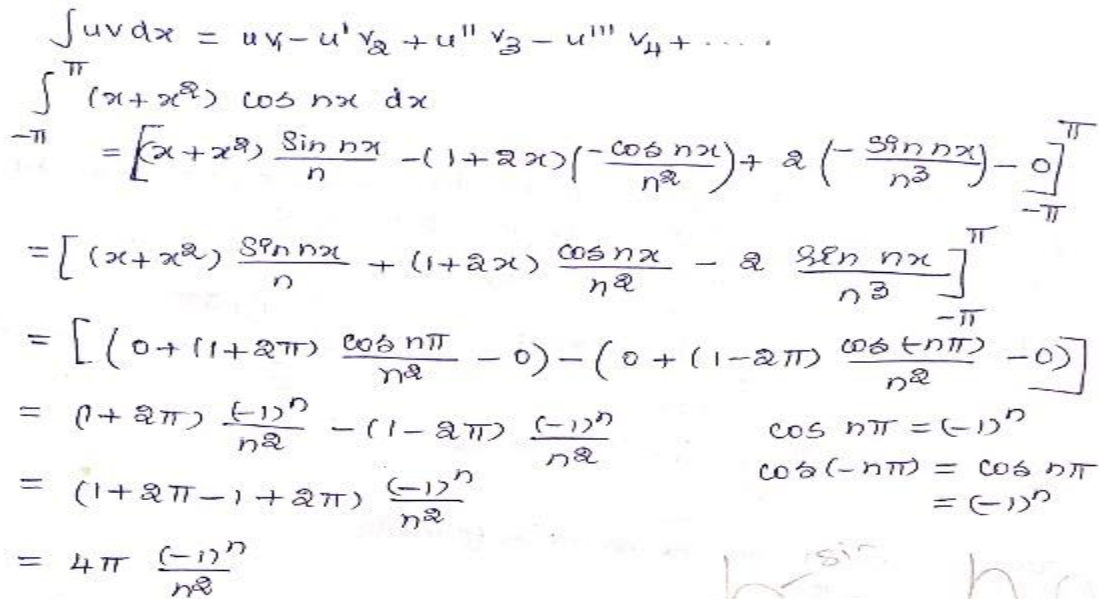 ∫uvdx = uv₁ - u' v₂ + u'' v₃ - u''' v₄ + ....
∫_{-π}^{π} (x+x²) cos nx dx
= [(x+x²) Sin nx / n - (1+2x)(-cos nx / n²) + 2 (-sin nx / n³) - 0]_{-π}^{π}
= [(x+x²) Sin nx / n + (1+2x) cos nx / n² - 2 sin nx / n³]_{-π}^{π}
= [(0+(1+2π) cos nπ / n² - 0) - (0+(1-2π) cos(-nπ) / n² - 0)]
= (1+2π) (-1)ⁿ / n² - (1-2π) (-1)ⁿ / n² cos nπ = (-1)ⁿ
cos(-nπ) = cos nπ
= (1+2π-1+2π) (-1)ⁿ / n² = (-1)ⁿ
= 4π (-1)ⁿ / n²
sin